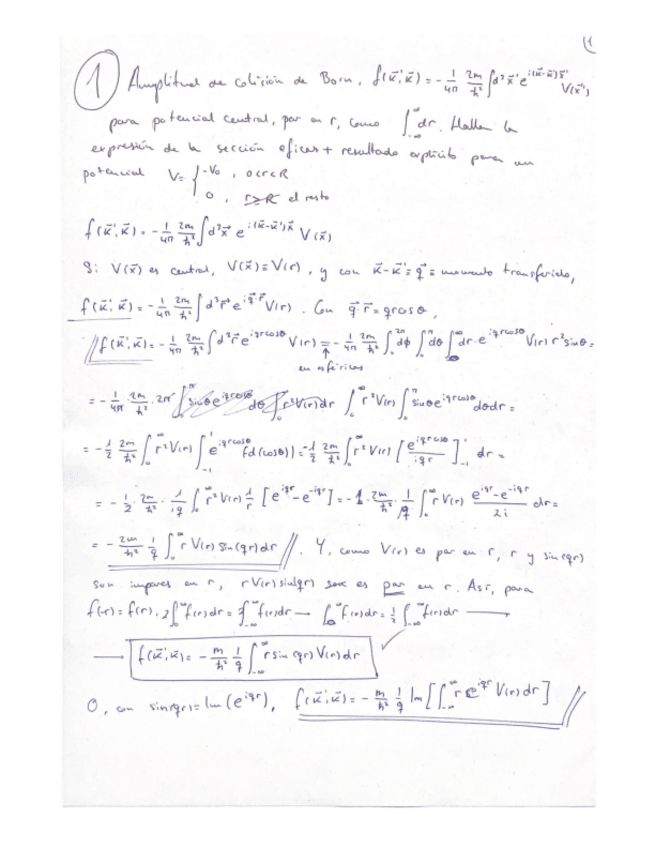 1
① Amplitud de colisión de Born, f(k⃗',k⃗) = -1/4π 2m/ħ² ∫d³x⃗' e^{i(k⃗-k⃗')x⃗'} V(x⃗')
para potencial central, par en r, como ∫_{-∞}^{∞} dr. Hallen la
expresión de la sección eficaz + resultado explícito para un
potencial V = { -V₀, 0<r<R
0, r>R el resto
f(k⃗',k⃗) = -1/4π 2m/ħ² ∫d³x⃗ e^{i(k⃗-k⃗')x⃗} V(x⃗)
Si V(x⃗) es central, V(x⃗) ≡ V(r), y con k⃗-k⃗' ≡ q⃗ ≡ momento transferido,
f(k⃗',k⃗) = -1/4π 2m/ħ² ∫d³r⃗ e^{iq⃗·r⃗} V(r). Con q⃗·r⃗ = qrcosθ,
f(k⃗',k⃗) = -1/4π 2m/ħ² ∫d³r⃗ e^{iqrcosθ} V(r) = -1/4π 2m/ħ² ∫₀^{2π} dϕ ∫₀^π dθ ∫₀^∞ dr·e^{iqrcosθ} V(r) r² sinθ =
↑ en esféricas
= -1/4π · 2m/ħ² · 2π ∫₀^∞ r² V(r) ∫₀^π sinθ e^{iqrcosθ} dθ dr =
= -1/2 2m/ħ² ∫₀^∞ r² V(r) ∫_{-1}^{1} e^{iqrcosθ} (d(cosθ)) = -1/2 2m/ħ² ∫₀^∞ r² V(r) [e^{iqrcosθ}/iqr]_{-1}^{1} dr =
= -1/2 · 2m/ħ² · 1/iq ∫₀^∞ r² V(r) 1/r [e^{iqr} - e^{-iqr}] = -1 · 2m/ħ² · 1/q ∫₀^∞ r V(r) (e^{iqr} - e^{-iqr})/2i dr =
= -2m/ħ² 1/q ∫₀^∞ r V(r) sin(qr) dr // . Y, como V(r) es par en r, r y sin(qr)
son impares en r, rV(r)sin(qr) es par en r. Así, para
f(-r) = f(r), 2∫₀^∞ f(r)dr = ∫_{-∞}^{∞} f(r)dr → ∫₀^∞ f(r)dr = 1/2 ∫_{-∞}^{∞} f(r)dr →
→ f(k⃗',k⃗) = -m/ħ² 1/q ∫_{-∞}^{∞} r sin(qr) V(r) dr ✓
O, con sin(qr) = Im(e^{iqr}), f(k⃗',k⃗) = -m/ħ² 1/q Im[∫_{-∞}^{∞} r e^{iqr} V(r) dr] //